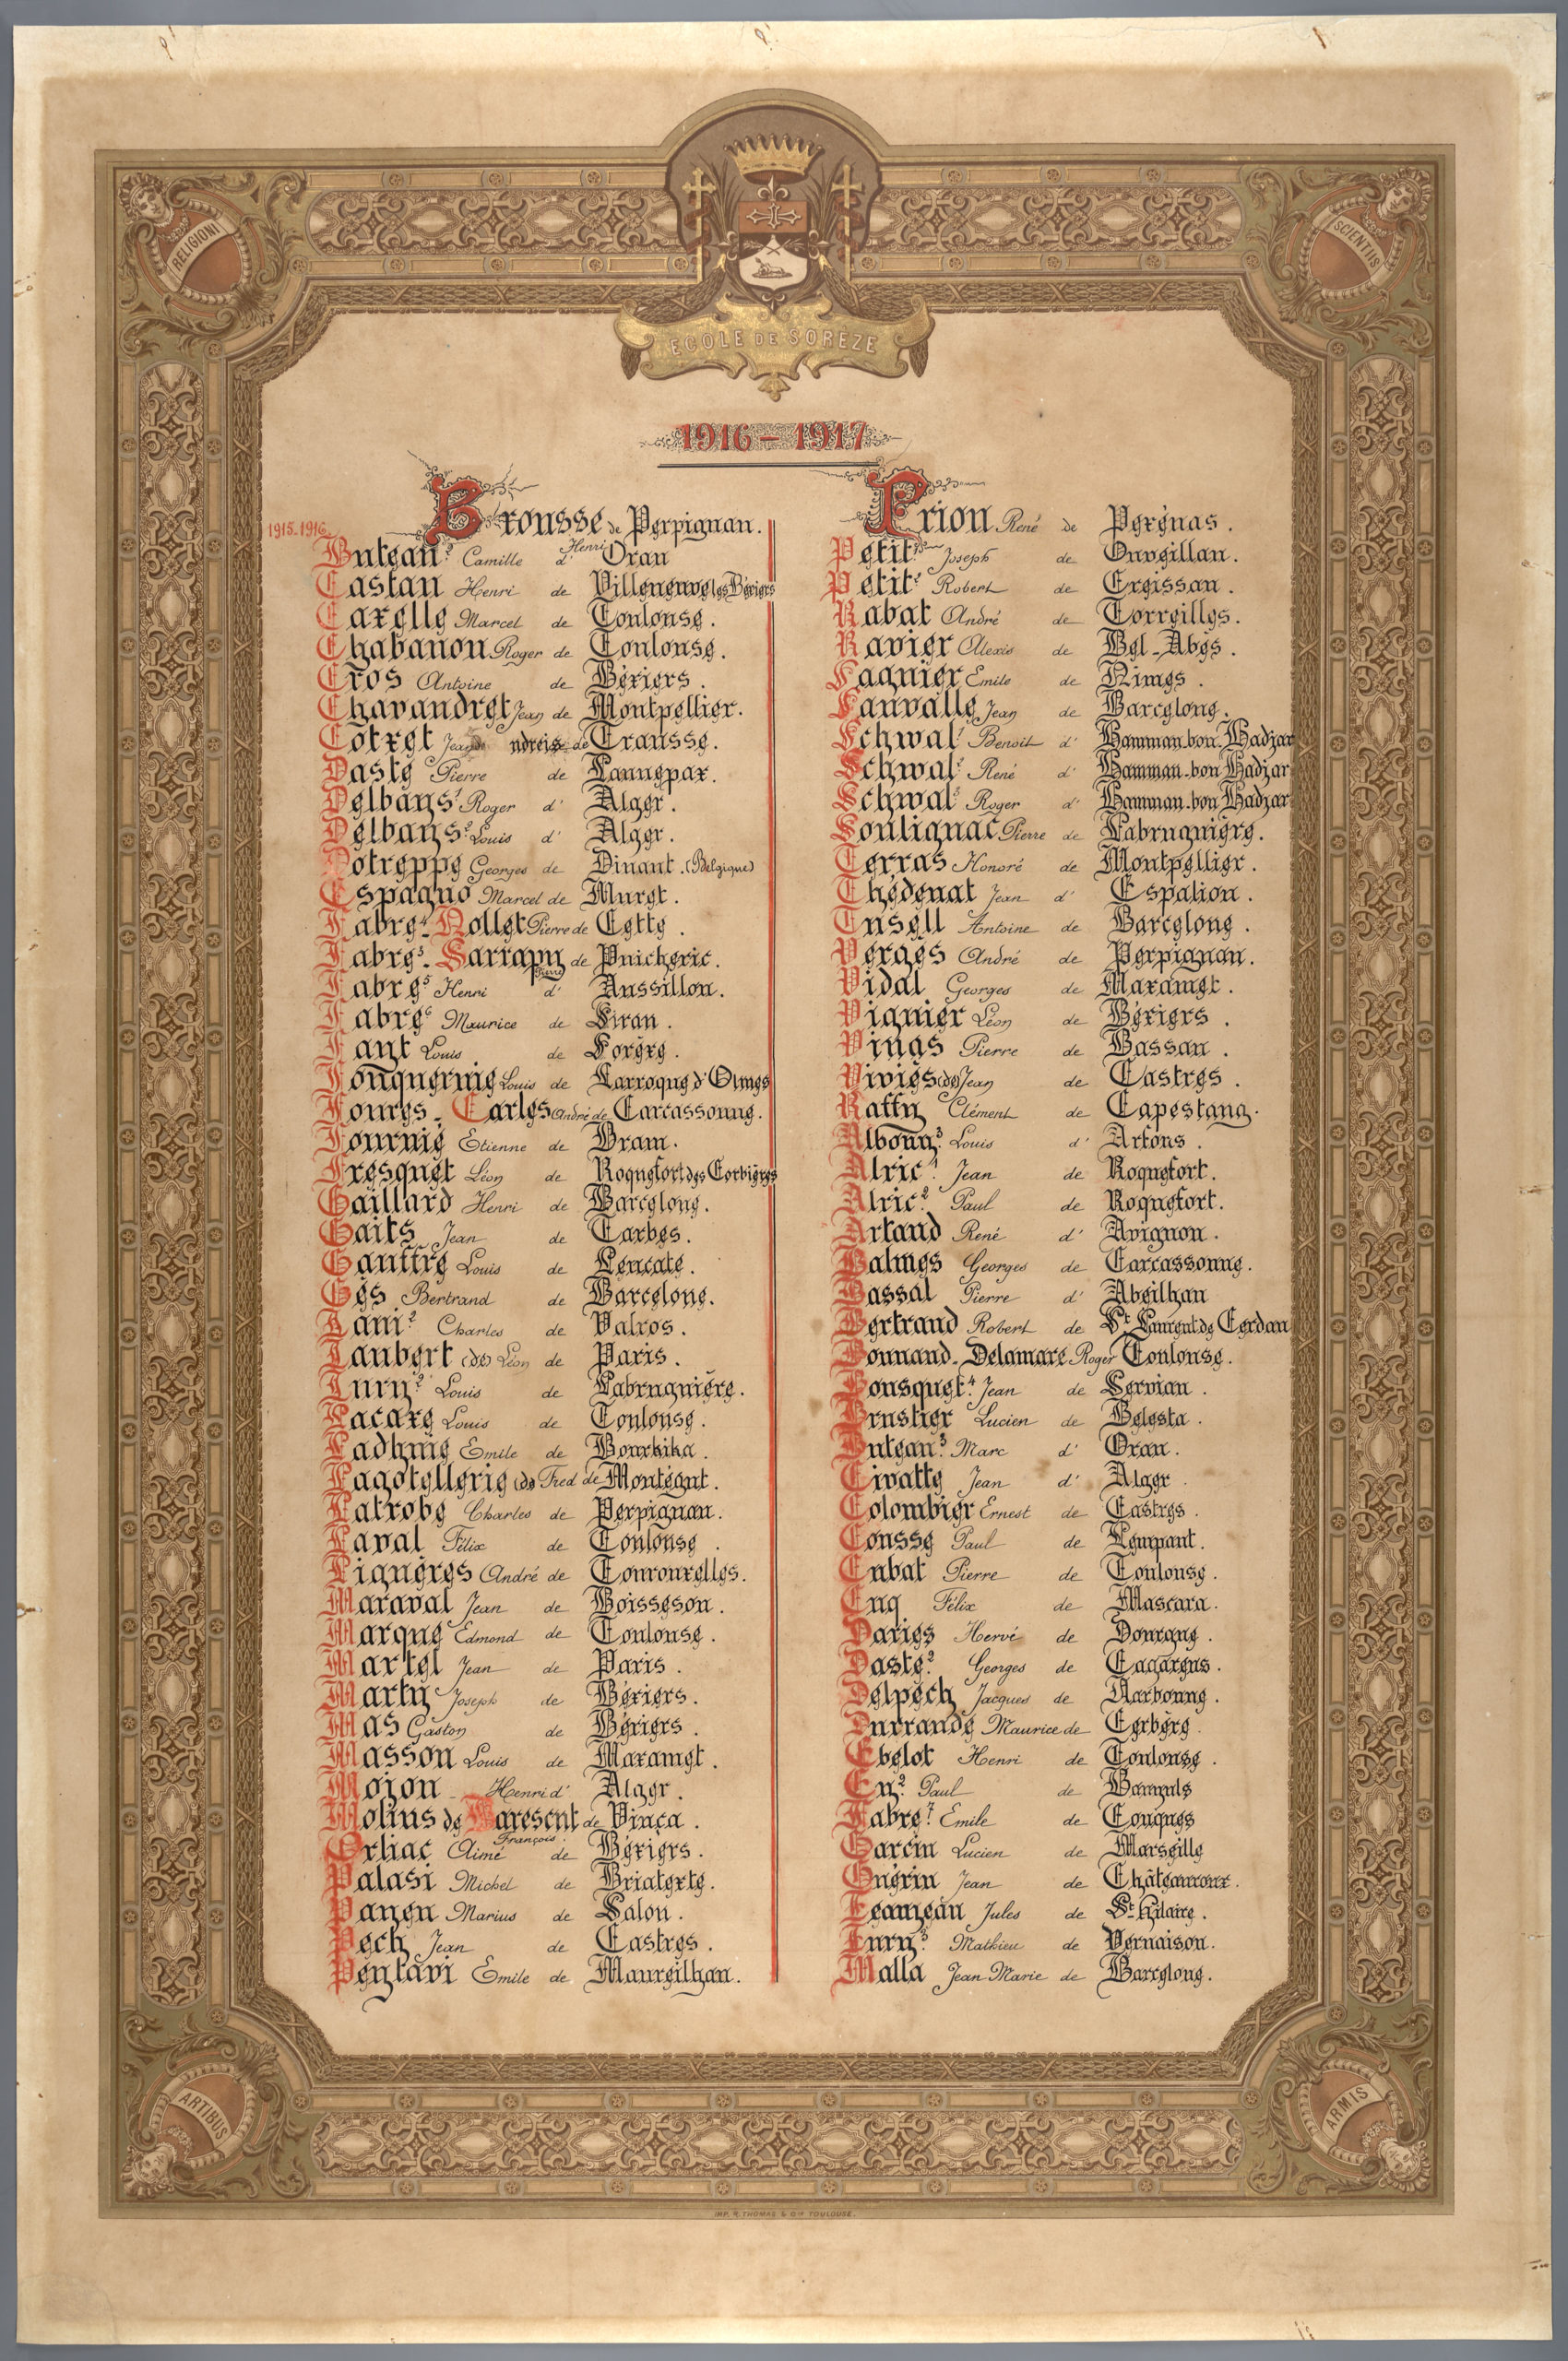 RELIGIONI
SCIENTIIS
ECOLE DE SOREZE
1916 – 1917
1915-1916
Brousse de Perpignan.
Henri
Butean² Camille d' Oran
Castan Henri de Villeneuve les Béziers
Cazelle Marcel de Toulouse.
Chabanon Roger de Toulouse.
Cros Antoine de Béziers.
Chavandret Jean de Montpellier.
Cotxet Jean de Trausse.
Daste Pierre de Lannepax.
Delbays¹ Roger d' Alger.
Delbays² Louis d' Alger.
Dotreppe Georges de Dinant. (Belgique)
Espagno Marcel de Muret.
Fabre⁴-Nollet Pierre de Cette.
Fabre³-Sarrapy de Puicheric.
Pierre
Fabre⁵ Henri d' Aussillon.
Fabre⁶ Maurice de Siran.
Fant Louis de Sorèze.
Fonquernie Louis de Larroque d'Olmes
Foures-Carles André de Carcassonne.
Fournié Etienne de Bram.
Fresquet Léon de Roquefort des Corbières
Gaillard Henri de Barcelone.
Gaits Jean de Tarbes.
Gauffre Louis de Leucate.
Ges Bertrand de Barcelone.
Jani² Charles de Valros.
Jaubert (de) Léon de Paris.
Jury² Louis de Labruguière.
Lacaze Louis de Toulouse.
Ladhuie Emile de Bourkika.
Lagotellerie (de) Fred de Montégut.
Latrobe Charles de Perpignan.
Laval Félix de Toulouse.
Lignères André de Tourouzelles.
Maraval Jean de Boisseson.
Marque Edmond de Toulouse.
Martel Jean de Paris.
Marty Joseph de Béziers.
Mas Gaston de Béziers.
Masson Louis de Mazamet.
Mojon Henri d' Alger.
Molins de Barescut de Vinça.
François
Orliac Aimé de Béziers.
Palasi Michel de Briatexte.
Panen Marius de Salon.
Pech Jean de Castres.
Peytavi Emile de Maureilhan.
Prion René de Pezénas.
Petit¹ Joseph de Ouveillan.
Petit² Robert de Creissan.
Rabat André de Torreilles.
Ravier Alexis de Bel-Abès.
Sagnier Emile de Nimes.
Sauvalle Jean de Barcelone.
Schwal¹ Benoit d' Hamman-bou-Hadjar
Schwal² René d' Hamman-bou Hadjar
Schwal³ Roger d' Hamman-bou Hadjar
Soulignac Pierre de Labruguière.
Terras Honoré de Montpellier.
Thédenat Jean d' Espalion.
Tusell Antoine de Barcelone.
Vergès André de Perpignan.
Vidal Georges de Mazamet.
Viguier Léon de Béziers.
Vinas Pierre de Bassan.
Viviès (de) Jean de Castres.
Raffy Clément de Capestang.
Albouy³ Louis d' Arfons.
Alric¹ Jean de Roquefort.
Alric² Paul de Roquefort.
Artaud René d' Avignon.
Balmes Georges de Carcassonne.
Bassal Pierre d' Abeilhan
Bertrand Robert de St Laurent de Cerdan
Bonnand-Delamare Roger Toulouse.
Bousquet⁴ Jean de Servian.
Brustier Lucien de Belesta.
Butean³ Marc d' Oran.
Civatte Jean d' Alger.
Colombier Ernest de Castres.
Cousse Paul de Lempaut.
Cubat Pierre de Toulouse.
Cuq Félix de Mascara.
Dariès Hervé de Dourgne.
Daste² Georges de Cagarens.
Delpech Jacques de Narbonne.
Durrande Maurice de Cerbère.
Ebelot Henri de Toulouse.
Ey² Paul de Banyuls
Fabre⁷ Emile de Conques
Garcin Lucien de Marseille
Guérin Jean de Châteauroux.
Jeanjean Jules de St Hilaire.
Jury³ Mathieu de Vernaison.
Malla Jean Marie de Barcelone.
ARTIBUS
ARMIS
IMP. R. THOMAS & Cie TOULOUSE.